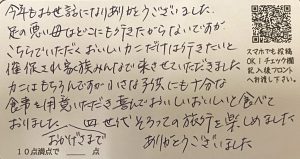 今年もお世話になりありがとうございました。
足の悪い母はどこにも行きたがらないですが
こちらでいただくおいしいカニだけは行きたいと
催促され家族みんなで来させていただきました
カニはもちろんですが小さな子供にも十分な
食事を用意いただき喜んでおいしいおいしいと食べて
おりました 四世代そろっての旅行を楽しめました
おかげさまで
ありがとうございました
10点満点で 点
スマホでも投稿
OK!チェック欄
記入後フロント
へお渡し下さい。